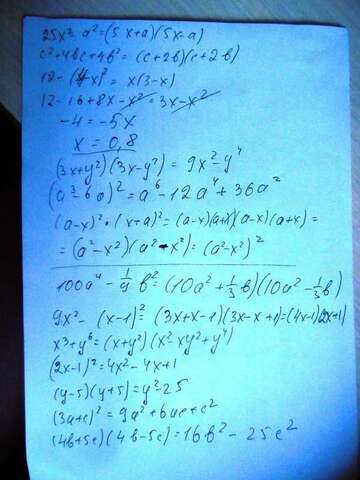 25x² - a² = (5x+a)(5x-a)
c² + 4bc + 4b² = (c+2b)(c+2b)
12 - (4-x)² = x(3-x)
12 - 16 + 8x - x² = 3x - x²
-4 = -5x
x = 0,8
(3x+y²)(3x-y²) = 9x² - y⁴
(a³ - 6a)² = a⁶ - 12a⁴ + 36a²
(a-x)² · (x+a)² = (a-x)(a+x)(a-x)(a+x) =
= (a² - x²)(a² - x²) = (a² - x²)²
100a⁴ - 1/9 b² = (10a² + 1/3 b)(10a² - 1/3 b)
9x² - (x-1)² = (3x+x-1)(3x-x+1) = (4x-1)(2x+1)
x³ + y⁶ = (x+y²)(x² - xy² + y⁴)
(2x-1)² = 4x² - 4x + 1
(y-5)(y+5) = y² - 25
(3a+c)² = 9a² + 6ac + c²
(4b+5c)(4b-5c) = 16b² - 25c²